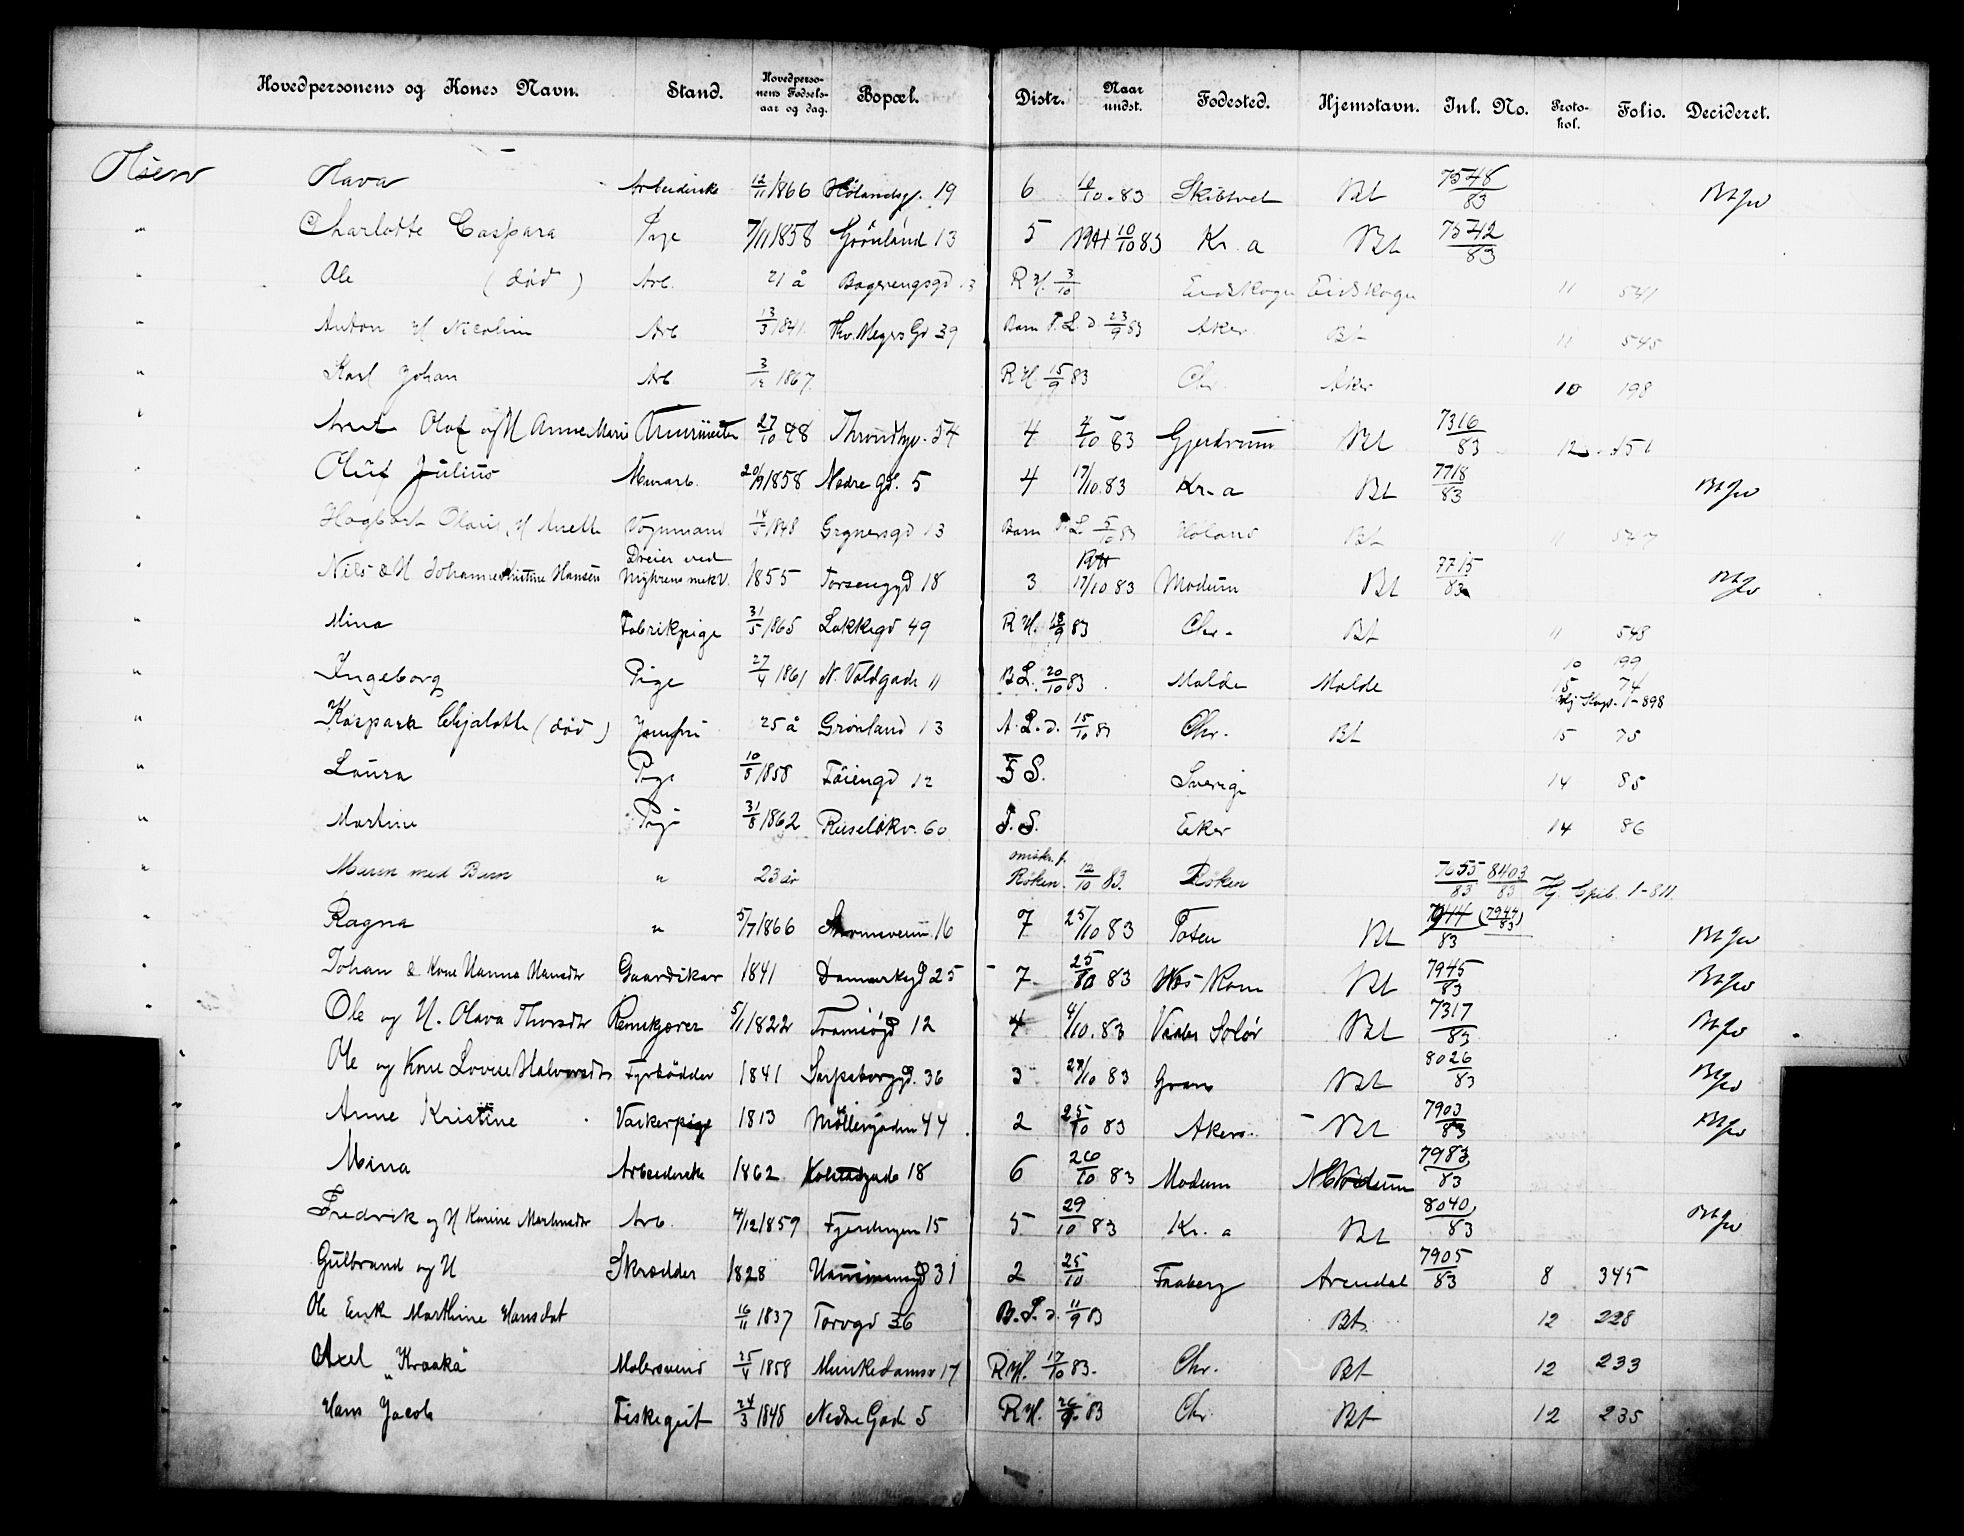 Hovedpersonens og Kones Navn. Stand. Hovedpersonens Fødselsaar og dag. Bopæl. Distr. Naar undst. Fødested. Hjemstavn. Inl. No. Protokol. Folio. Decideret.
Olsen Olava Arbeiderske 12/11 1866 Hølandsg. 19 6 10/10.83 Skibtvet Bt 7548/83
" Charlotte Caspara Pige 7/11 1858 Grönland 13 5 10/10 83 Kr. a Bt 7542/83
" Ole (død) Arb. 21 å 13 R H. 3/10 Eidskogn Eidskogn 11 541
" Anton H Nicoline Arb 13/3 1841 Thv. Meyers Gd 39 Barn F. L. d 23/9 83 Aker Bt 11 545
" Karl Johan Arb 3/12 1867. R H. 15/9 83 Chr. Aker 10 198
" Olaf og H Anne Marie 27/10 48 Throndhjv. 54 4 4/10 83 Gjerdrum Bt 7316/83 12 451
" Oluf Julius Murarb. 20/9 1858 Nedre gd. 5 4 17/10.83 Kr. a Bt 7718/83
" Hagbart Olaus, H Anette Vognmand 14/5 1848 13 Barn F. L. 5/10 83 Høland Bt 11 547
" Nils & H Johanne Kristine Hansen Dreier ved mek V. 1855 18 3 17/10 83 Modum Bt 7715/83
" Mina Fabrikpige 31/5 1865 Lakkegd 49 R H. 18/9 83 Chr. Bt 11 548
" Ingeborg Pige 27/4 1861 N. Voldgade 11 B L. 20/10 83 Molde Molde 10 199 15 74
" Kaspara Chjalotte (død) Jomfru 25 å Grønland 13 A. L. d. 15/10 83 Chr. Bt 15 75 1-898
" Laura Pige 10/8 1858 Föiengd 12 F S. Sverige 14 85
" Martine Pige 31/8 1862 Ruseløkv. 60 F. S. Eker 14 86
" Maren med Barn " 23 år Røken. 12/10 83. Røken 7655/83 8403/83 1-811
" Ragna " 5/7 1866 16 7 25/10 83 Toten Bt 7944/83
" Johan & Kone Hanna Hansdtr Gaardskar 1841 Danmarksgd 25 7 25/10 83 Bt 7945/83
" Ole og H. Olava Thorsdtr 5/1 1822 Tromsögd 12 4 4/10.83 Solör Bt 7317/83
" Ole og Kone Lovise Halvorsdtr Fyrbödder 1841 Sarpsborggd. 36 3 83 Gran Bt 8026/83
" Anne Kristine Vaskerpige 1813 Möllergaden 44 2 25/10 83 Akers Bt 7903/83
" Mina Arbeiderske 1862 18 6 26/10 83 Modum Modum 7983/83
Fredrik og H Karine Martinsdtr Arb. 4/12 1859 Fjerdingen 15 5 29/10 83 Kr. a Bt 8040/83
Gulbrand og H Skrædder 1828 31 2 25/10 Faaberg Arendal 7905/83 8 345
Ole Enk Marthine Hansdat 16/11 1837 Torvgd 36 B. L. d. 11/9 83 Bt. 12 228
Axel "Kraaka" Malersvend 25/4 1858 Munkedamsv 17 R H. 17/10 83. Chr. Bt 12 233
Hans Jacob Fiskegut 24/3 1848 Nedre Gade 5 R H. 83 Chr. Bt 12 235